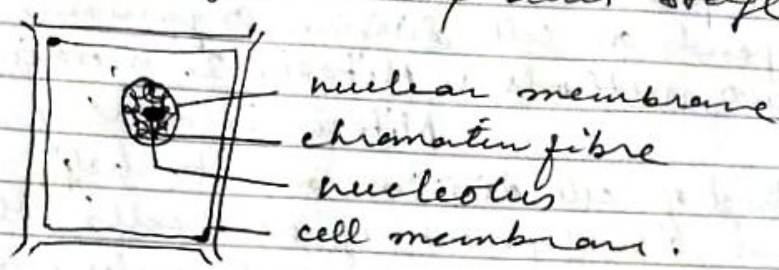 nuclear membrane
chromatin fibre
nucleolus
cell membrane.